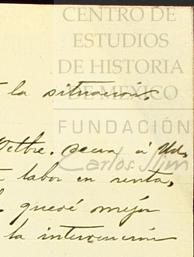 CENTRO DE
ESTUDIOS
DE HISTORIA
DE MÉXICO
FUNDACIÓN
Carlos Slim
la situación.
á Ud.
labor en renta,
quedé mejor
la intervención